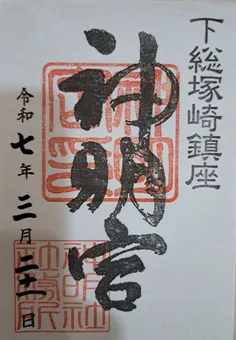 下総塚崎鎮座
神明宮
令和七年三月二十一日